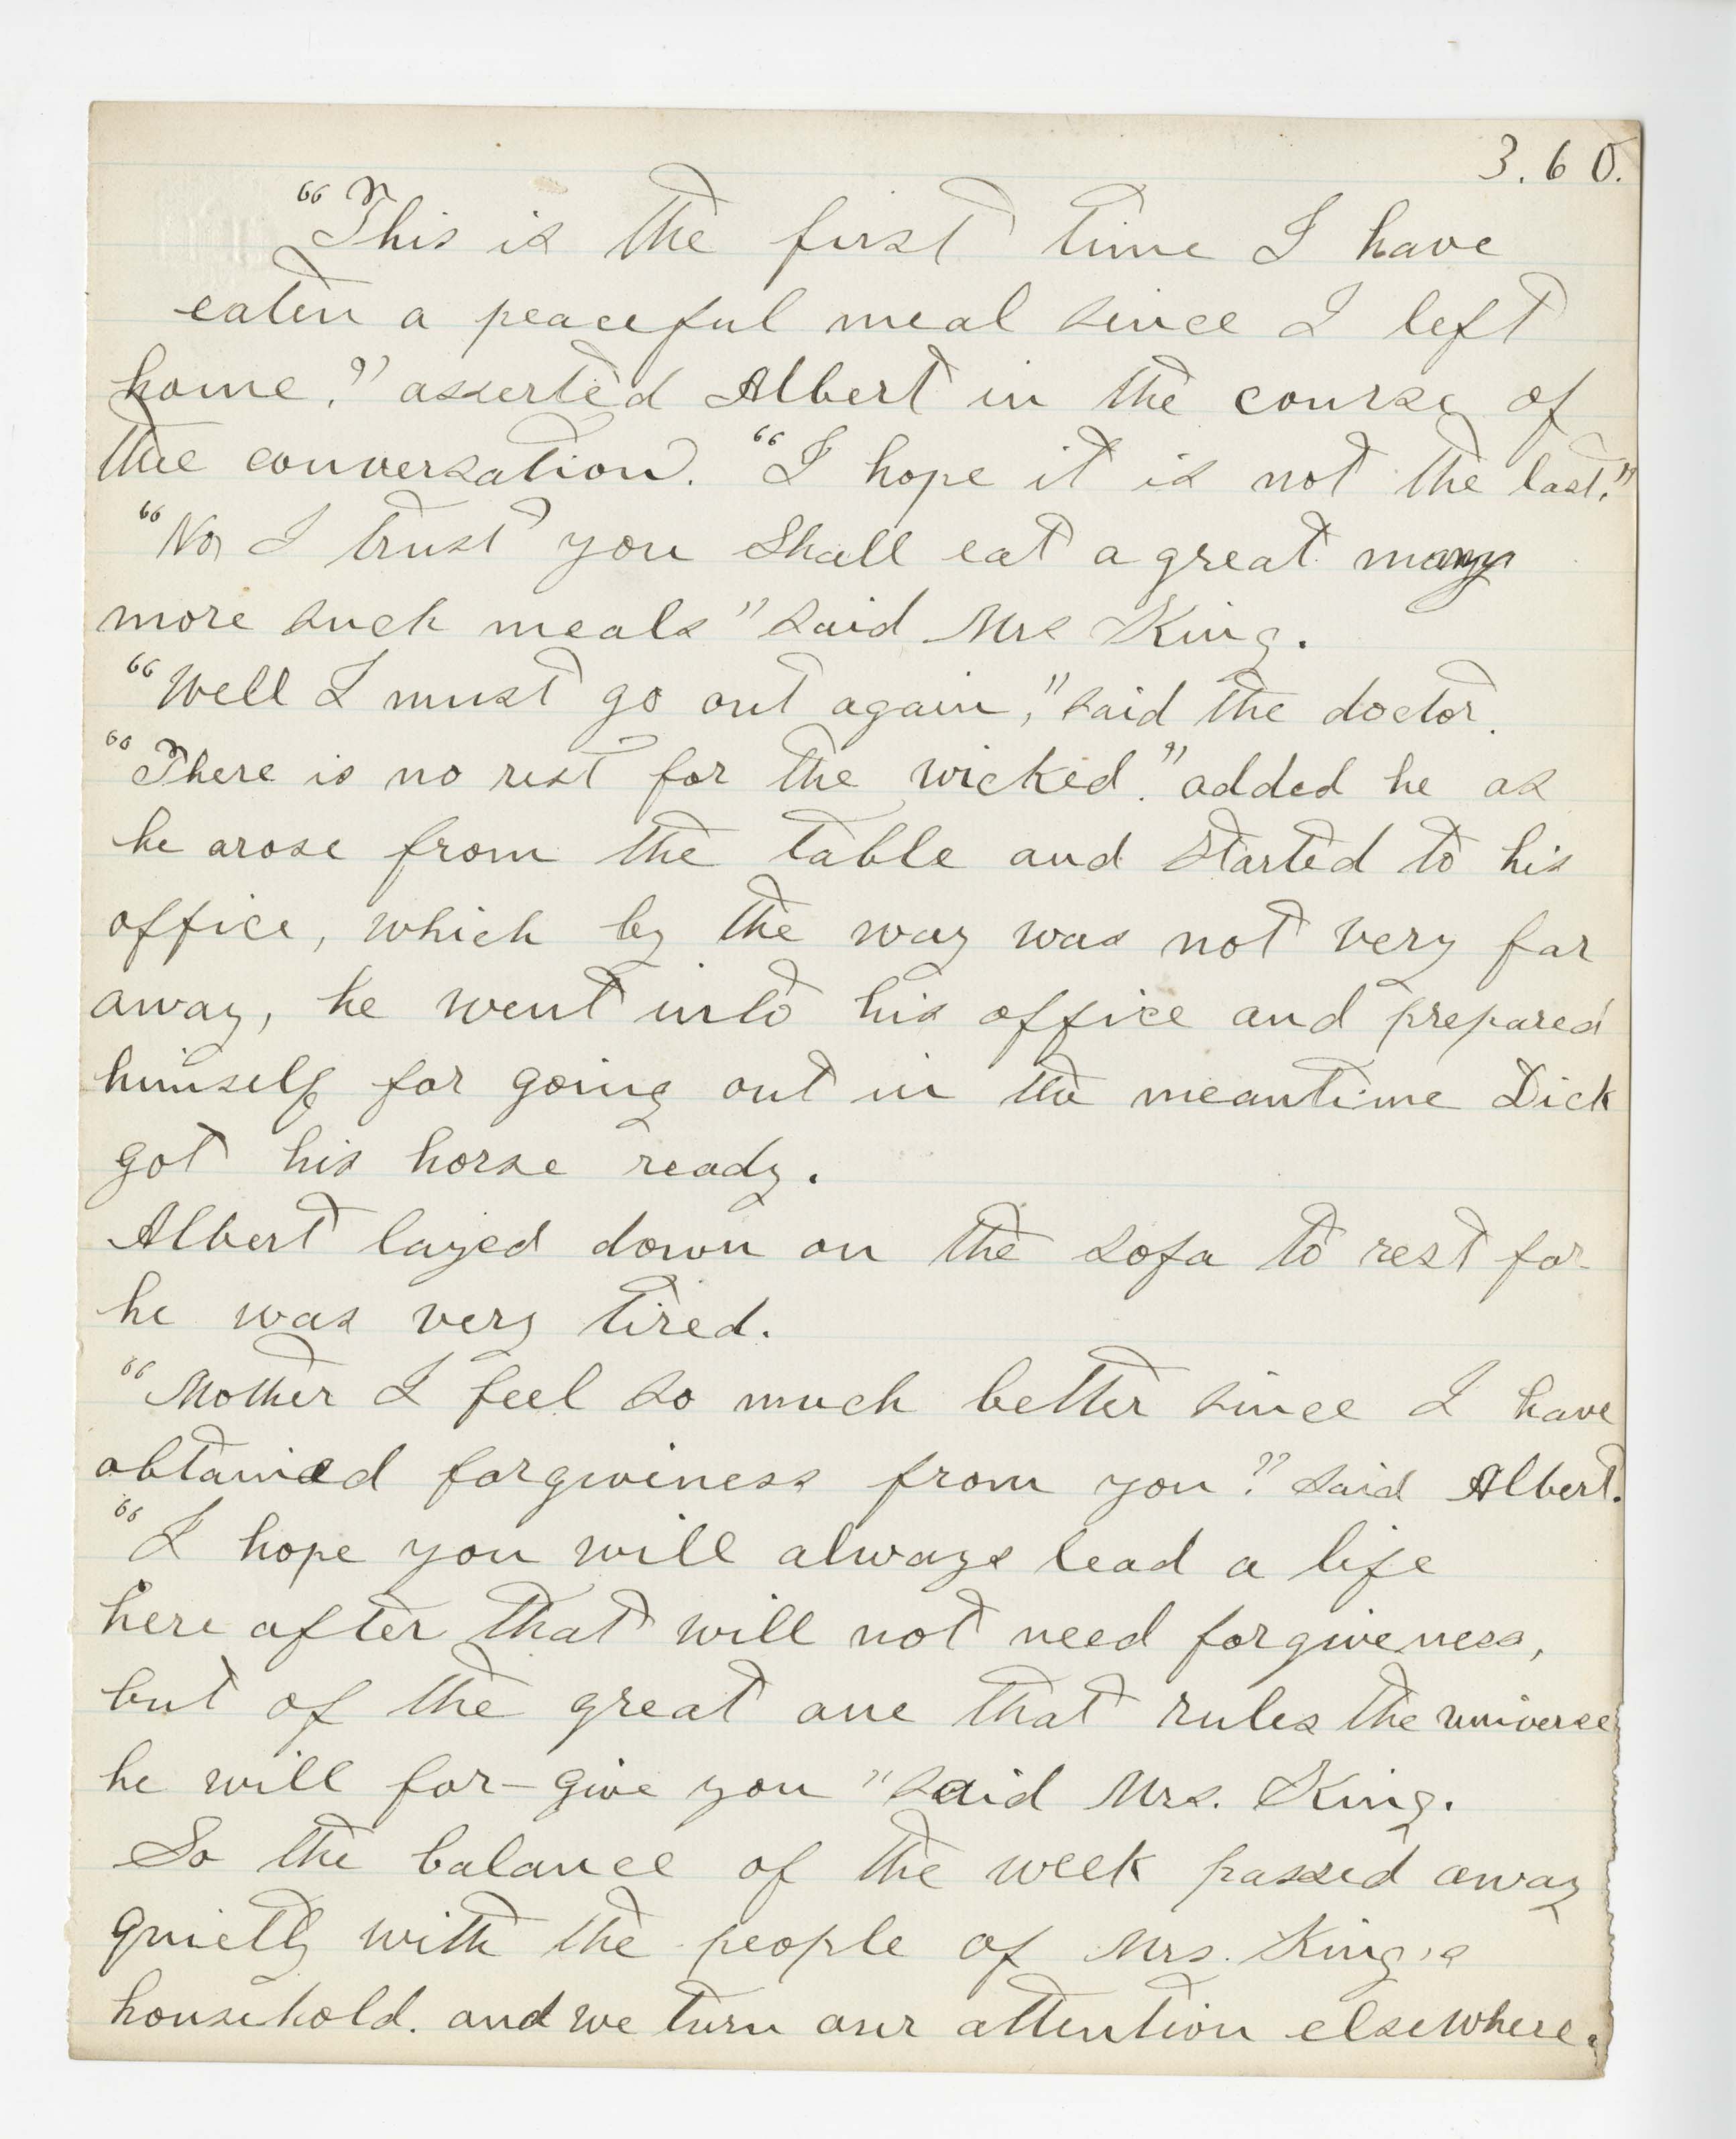 3.60.
"This is the first time I have
eaten a peaceful meal since I left
home," asserted Albert in the course of
the conversation. "I hope it is not the last."
"No, I trust you shall eat a great many
more such meals" said Mrs King.
"Well I must go out again," said the doctor.
"There is no rest for the wicked." added he as
he arose from the table and started to his
office, which by the way was not very far
away, he went into his office and prepared
himself for going out in the meantime Dick
got his horse ready.
Albert layed down on the sofa to rest for
he was very tired.
"Mother I feel so much better since I have
obtained forgiviness from you." said Albert.
"I hope you will always lead a life
here after that will not need forgiveness,
but of the great one that rules the universe
he will for-give you" said Mrs. King.
So the balance of the week passed away
quietly with the people of Mrs. King's
household. and we turn our attention elsewhere.